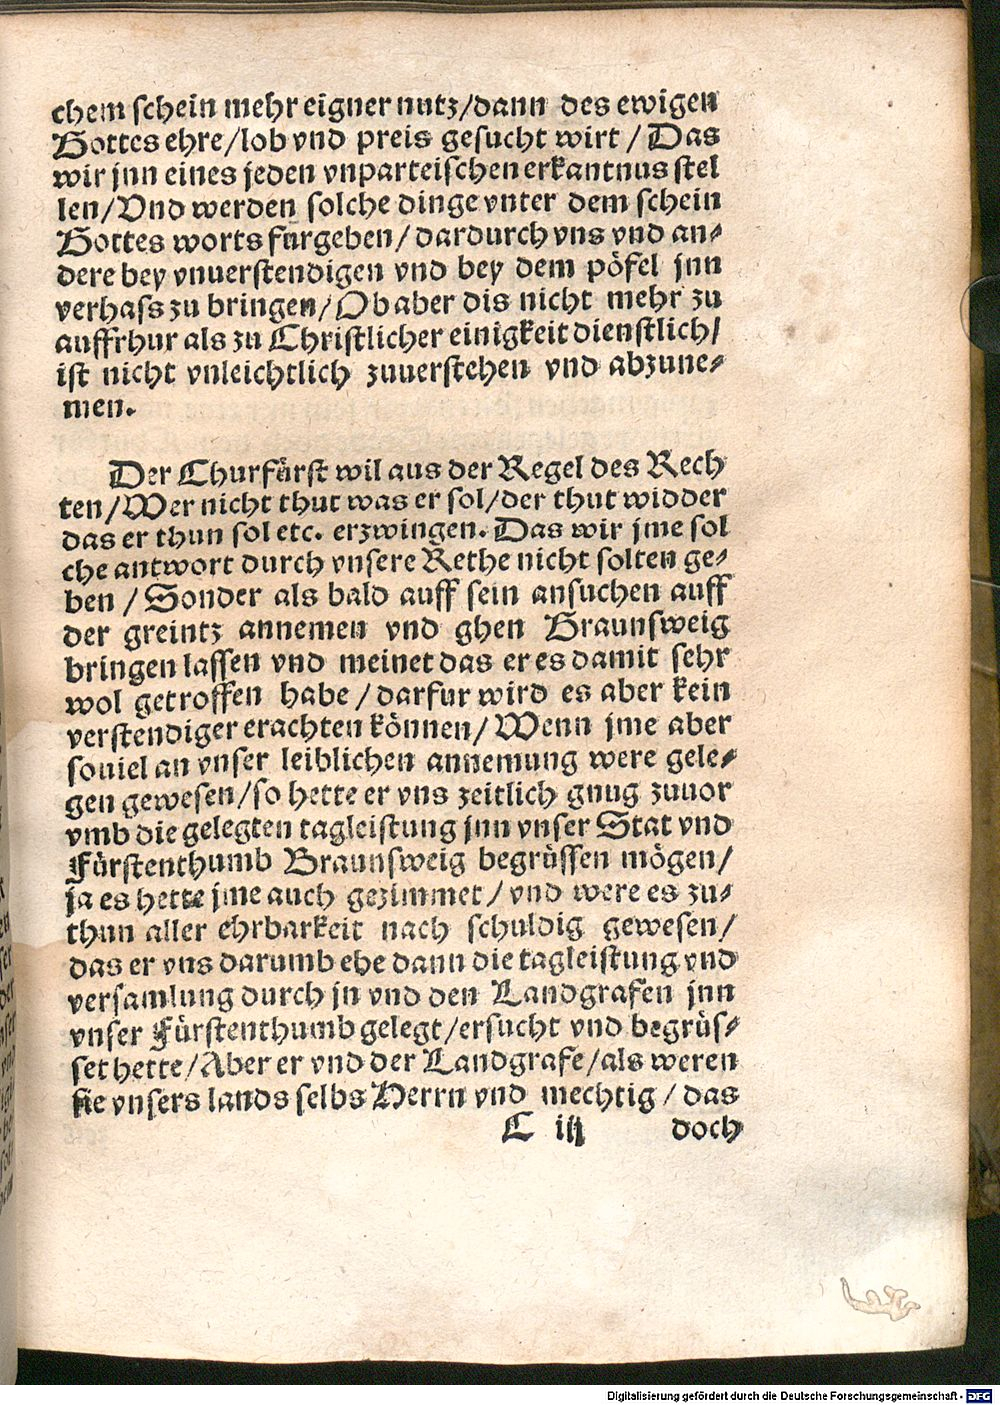 chem schein mehr eigner nutz/dann des ewigen
Gottes ehre/lob vnd preis gesucht wirt / Das
wir jnn eines jeden vnparteischen erkantnus stel
len/Vnd werden solche dinge vnter dem schein
Gottes worts fürgeben/ dardurch vns vnd an-
dere bey vnuerstendigen vnd bey dem pöfel jnn
verhass zu bringen/Ob aber dis nicht mehr zu
auffrhur als zu Christlicher einigkeit dienstlich/
ist nicht vnleichtlich zuuerstehen vnd abzune-
men.
Der Churfürst wil aus der Regel des Rech
ten/Wer nicht thut was er sol/der thut widder
das er thun sol etc. erzwingen. Das wir jme sol
che antwort durch vnsere Rethe nicht solten ge-
ben / Sonder als bald auff sein ansuchen auff
der greintz annemen vnd ghen Braunsweig
bringen lassen vnd meinet das er es damit sehr
wol getroffen habe / darfur wird es aber kein
verstendiger erachten können/ Wenn jme aber
souiel an vnser leiblichen annemung were gele-
gen gewesen/so hette er vns zeitlich gnug zuuor
vmb die gelegten tagleistung jnn vnser Stat vnd
Fürstenthumb Braunsweig begrüssen mögen/
ja es hette jme auch gezimmet / vnd were es zu-
thun aller ehrbarkeit nach schuldig gewesen/
das er vns darumb ehe dann die tagleistung vnd
versamlung durch jn vnd den Landgrafen jnn
vnser Fürstenthumb gelegt/ersucht vnd begrüs-
set hette/Aber er vnd der Landgrafe/als weren
sie vnsers lands selbs Herrn vnd mechtig / das
C iij doch
Digitalisierung gefördert durch die Deutsche Forschungsgemeinschaft - DFG